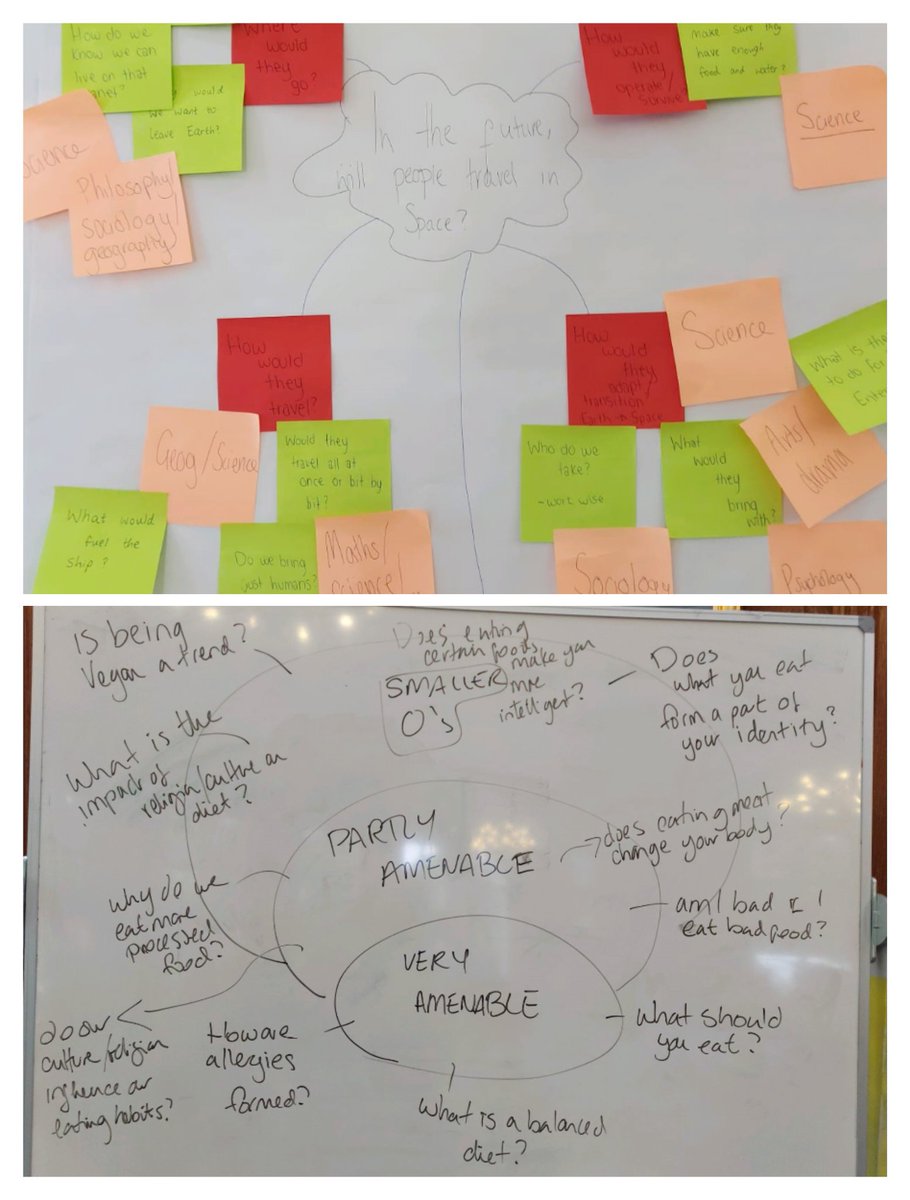 How do we
know we can
live on that
would
we want to
leave Earth?
Where
would
they
go?
Science
Philosophy/
sociology/
geography
In the future,
will people travel in
Space?
How
would
they
operate/
survive?
make sure they
have enough
food and water?
Science
How
would
they
travel?
Geog/Science
Would they
travel all at
once or bit by
bit?
What would
fuel the
ship?
Do we bring
just humans?
Maths/
science/
How
would
they
adapt/
transition
Earth → Space
Science
Who do we
take?
- wort wise
What
would
they
bring
with?
Arts/
drama
What is the
to do for
Enter
Sociology
Psychology
is being
Vegan a trend?
Does eating
certain foods
make you
more
intelligent?
SMALLER
O's
Does
what you eat
form a part of
your identity?
What is the
impact of
religion/culture on
diet?
PARTLY
AMENABLE
does eating meat
change your body?
Why do we
eat more
processed
food?
am I bad if I
eat bad food?
VERY
AMENABLE
do our
culture/religion
influence our
eating habits?
How are
allergies
formed?
What should
you eat?
What is a balanced
diet?